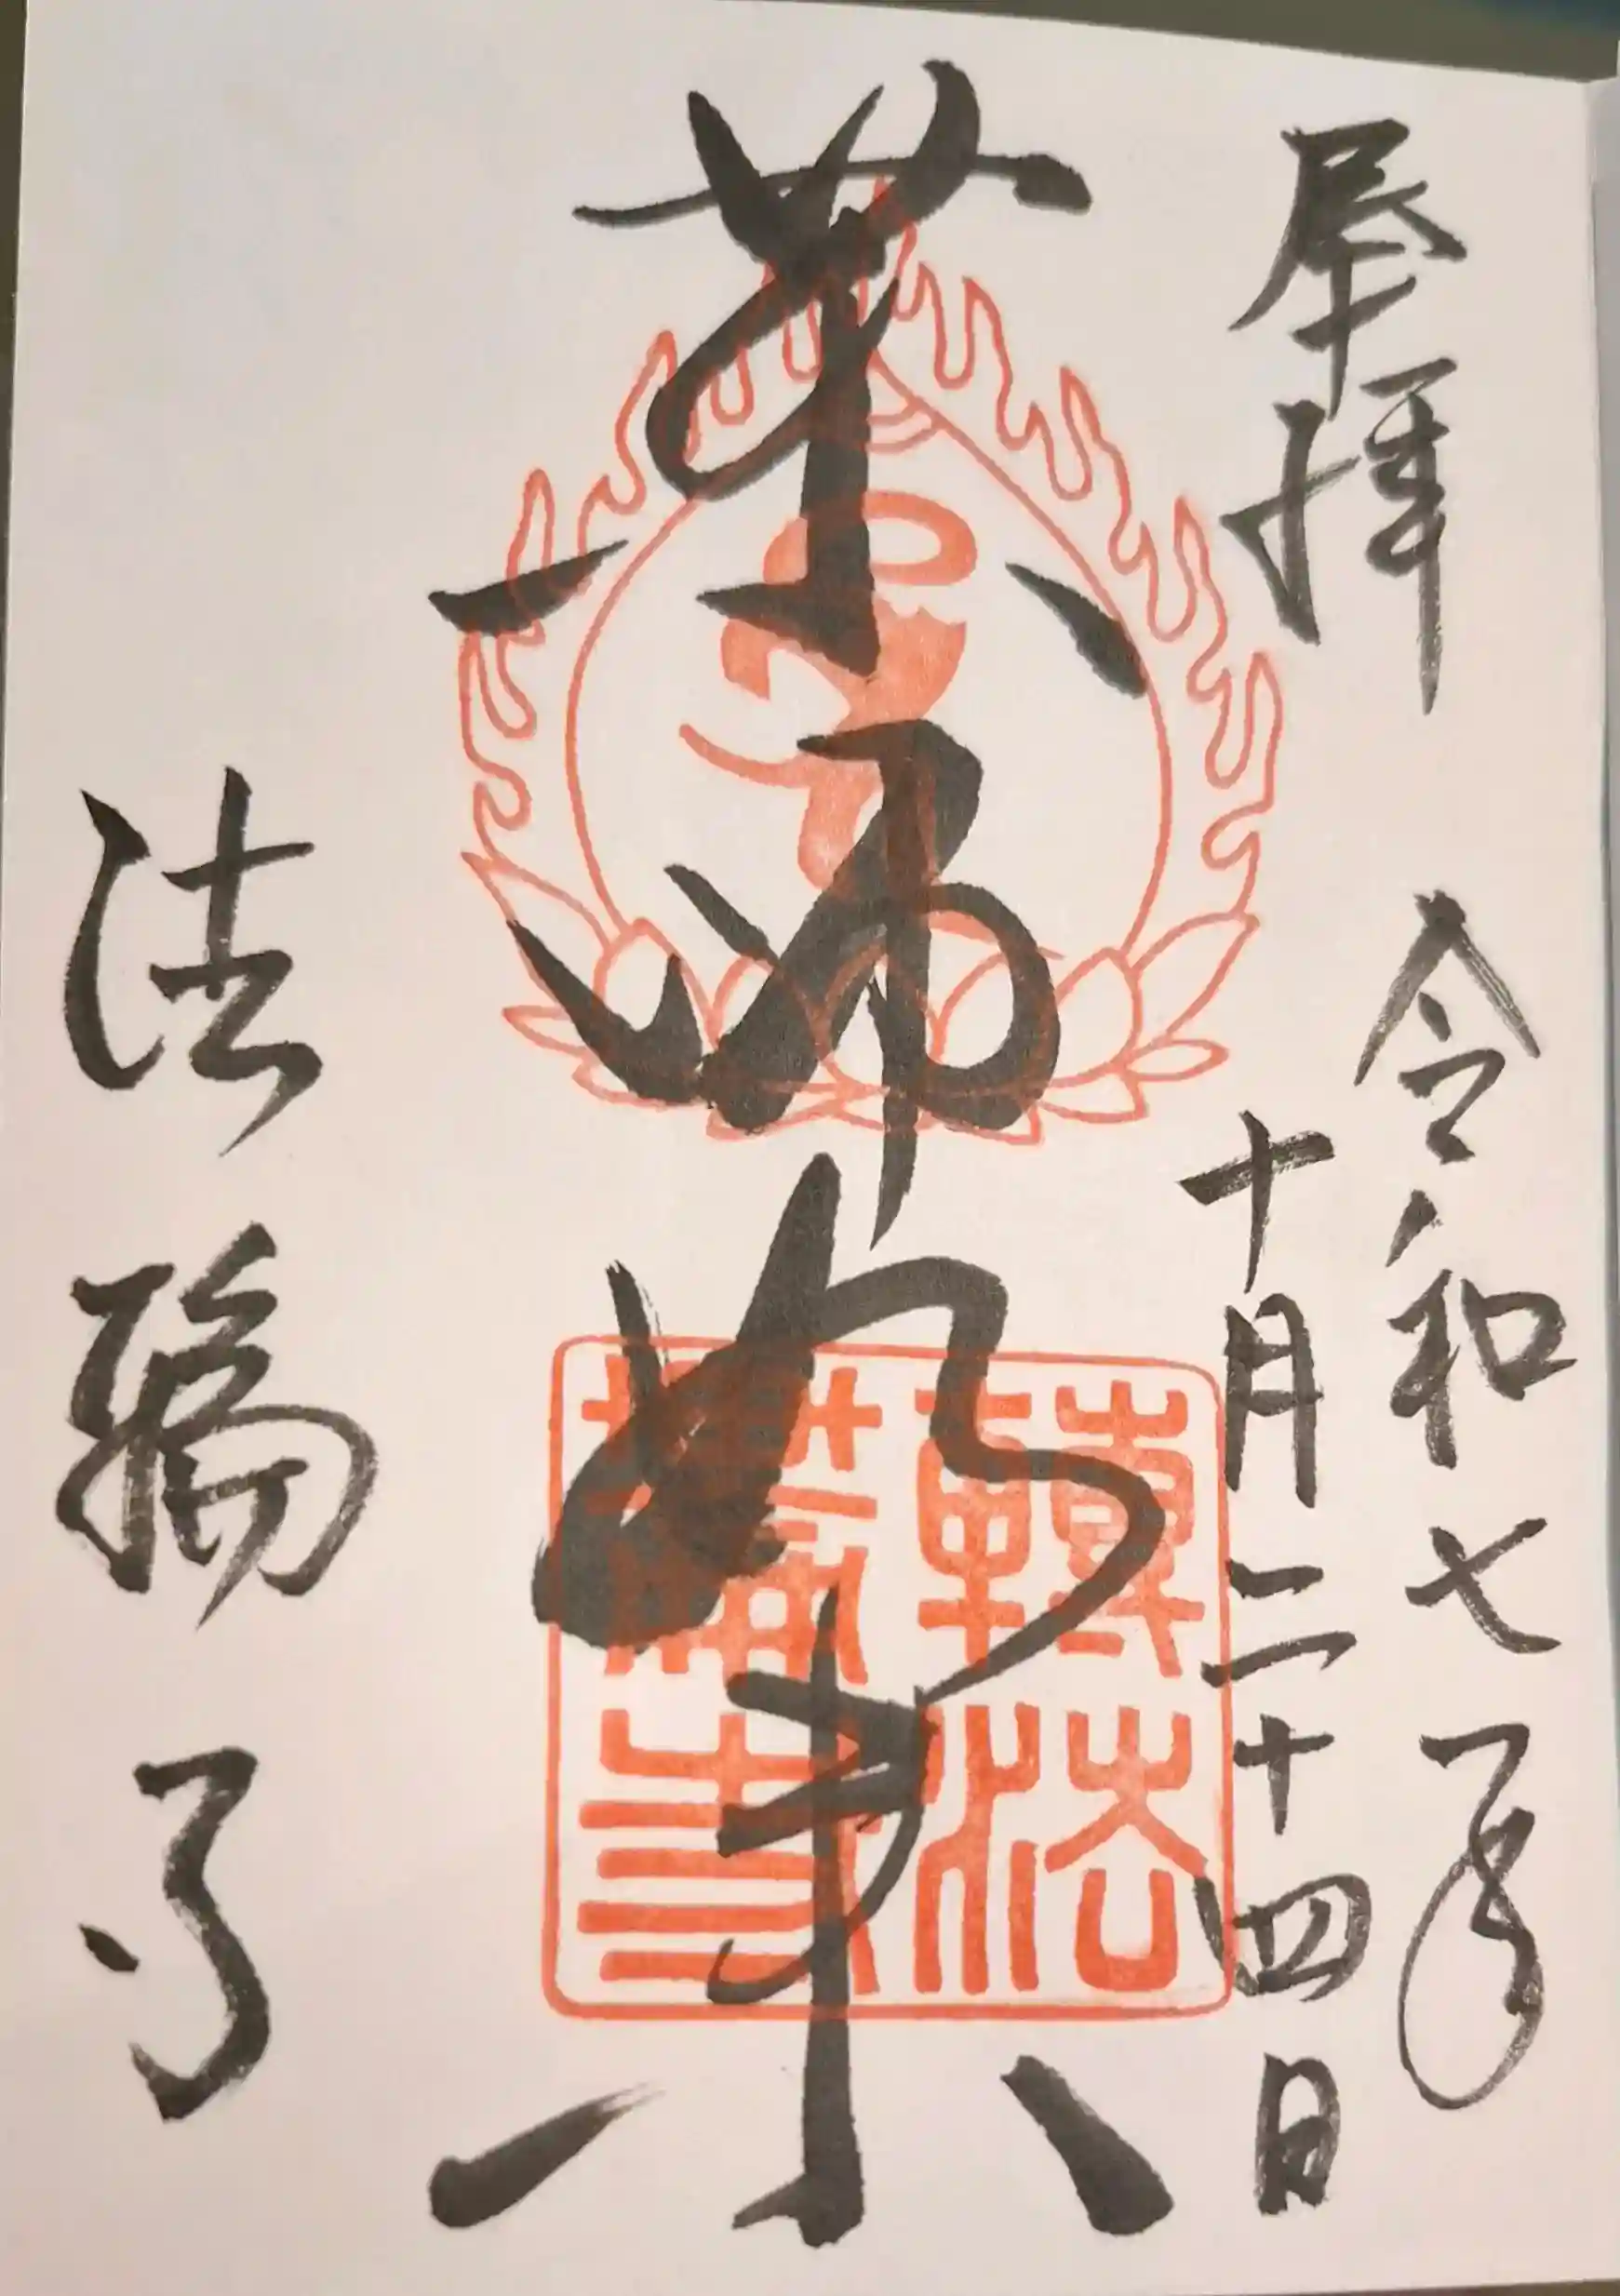 奉拝
令和七年
十月二十四日
薬師如来
轉法
輪寺
法輪寺